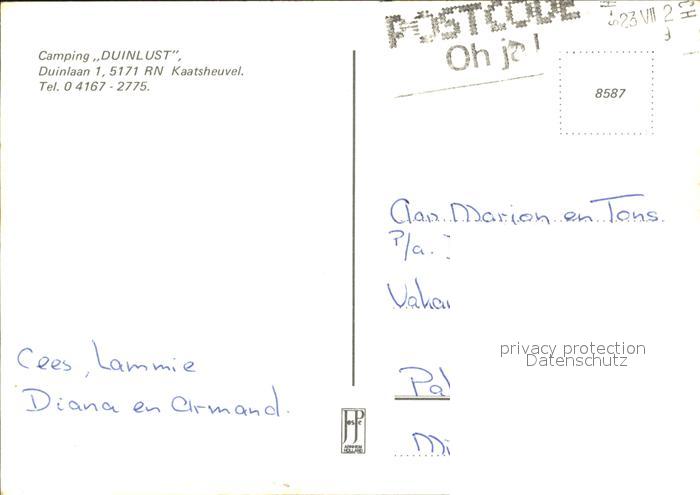 Camping „DUINLUST”,
Duinlaan 1, 5171 RN Kaatsheuvel.
Tel. 0 4167 - 2775.
POSTCODE
Oh ja!
23 VII
8587
Aan Marion en Tons.
P/a.
privacy protection
Datenschutz
Cees, Lammie
Diana en Armand.
ARNHEM
HOLLAND